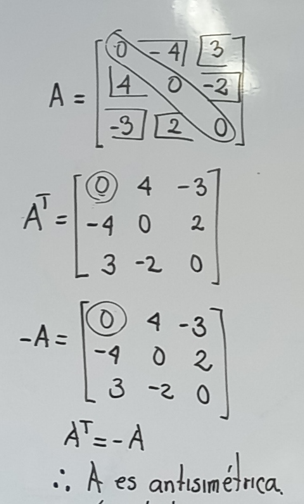 0 -4 3
A = 4 0 -2
-3 2 0
0 4 -3
Aᵀ = -4 0 2
3 -2 0
0 4 -3
-A = -4 0 2
3 -2 0
Aᵀ = -A
∴ A es antisimétrica.